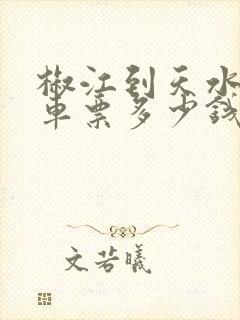 椒江到天水
车票多少钱
文若曦